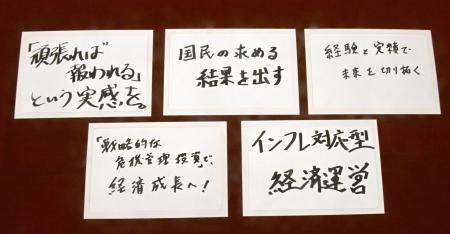 「頑張れば
報われる」
という実感を。
国民の求める
結果を出す
経験と実績で
未来を切り拓く
「戦略的な
危機管理投資」で、
経済成長へ!
インフレ対応型
経済運営